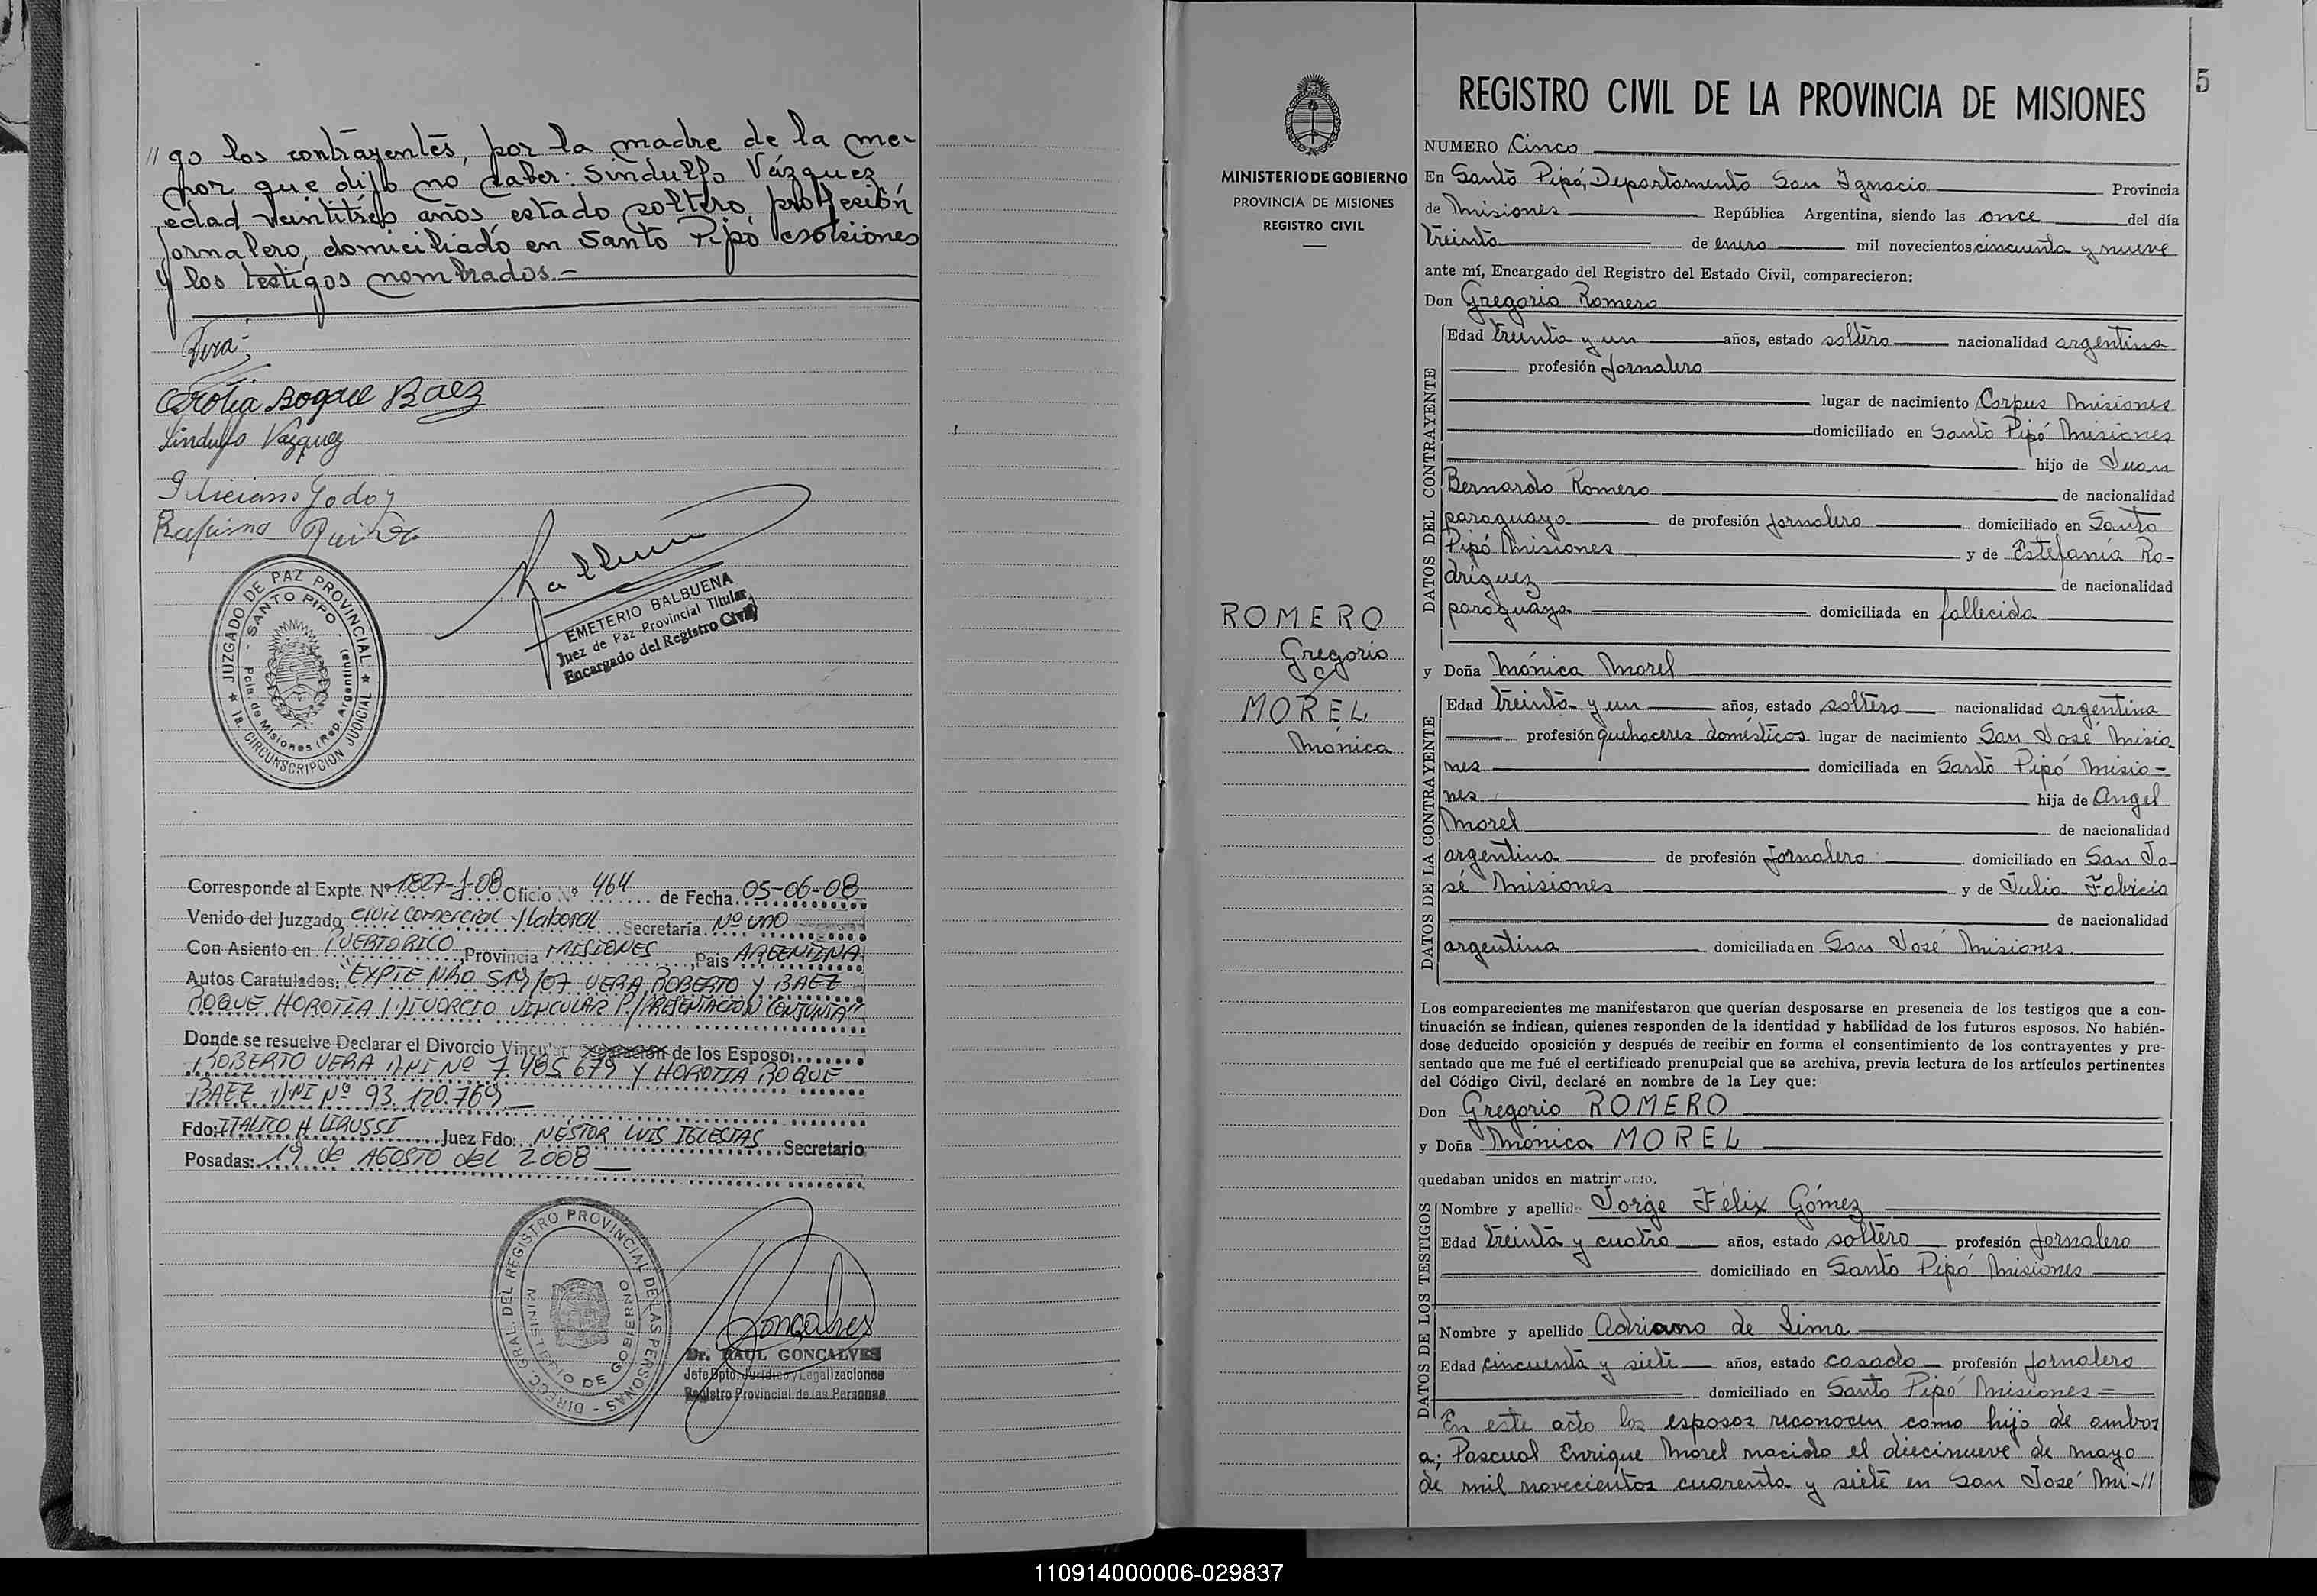 // go los contrayentes, por la madre de la me-
nor que dijo no saber: Sindulfo Vázquez
edad veintitrés años estado soltero, profesión
jornalero, domiciliado en Santo Pipó Misiones
y los testigos nombrados.-
Vera
Orotia Roque Baez
Sindulfo Vazquez
Feliciano Godoy
Rufino
JUZGADO DE PAZ PROVINCIAL
SANTO PIPO
Pcia. de Misiones (Rep. Argentina)
1a. CIRCUNSCRIPCION JUDICIAL
EMETERIO BALBUENA
Juez de Paz Provincial Titular
Encargado del Registro Civil
Corresponde al Expte. Nº 1827-J-08 Oficio Nº 464 de Fecha 05-06-08
Venido del Juzgado CIVIL COMERCIAL Y LABORAL Secretaría Nº UNO
Con Asiento en PUERTO RICO, Provincia MISIONES, País ARGENTINA
Autos Caratulados: "EXPTE NRO 519/07 VERA ROBERTO Y BAEZ
ROQUE HOROTIA / DIVORCIO VINCULAR P/PRESENTACION CONJUNTA"
Donde se resuelve Declarar el Divorcio Vincular Separación de los Esposo:
ROBERTO VERA DNI Nº 7.485.679 Y HOROTIA ROQUE
BAEZ DNI Nº 93.120.769
Fdo: ITALICO H. LIRUSSI Juez Fdo: NESTOR LUIS IGLESIAS Secretario
Posadas: 19 de AGOSTO del 2008
DIRECC. GRAL. DEL REGISTRO PROVINCIAL DE LAS PERSONAS
MINISTERIO DE GOBIERNO
Goncalves
Dr. RAUL GONCALVES
Jefe Dpto. Jurídico y Legalizaciones
Registro Provincial de las Personas
5
MINISTERIO DE GOBIERNO
PROVINCIA DE MISIONES
REGISTRO CIVIL
ROMERO
Gregorio
c/
MOREL
Mónica
REGISTRO CIVIL DE LA PROVINCIA DE MISIONES
NUMERO Cinco
En Santo Pipó, Departamento San Ignacio Provincia
de Misiones República Argentina, siendo las once del día
treinta de enero mil novecientos cincuenta y nueve
ante mí, Encargado del Registro del Estado Civil, comparecieron:
Don Gregorio Romero
DATOS DEL CONTRAYENTE
Edad treinta y un años, estado soltero nacionalidad argentina
profesión jornalero
lugar de nacimiento Corpus Misiones
domiciliado en Santo Pipó Misiones
hijo de Juan
Bernardo Romero de nacionalidad
paraguaya de profesión jornalero domiciliado en Santo
Pipó Misiones y de Estefanía Ro-
dríguez de nacionalidad
paraguaya domiciliada en fallecida
y Doña Mónica Morel
DATOS DE LA CONTRAYENTE
Edad treinta y un años, estado soltera nacionalidad argentina
profesión quehaceres domésticos lugar de nacimiento San José Misio
nes domiciliada en Santo Pipó Misio-
nes hija de Angel
Morel de nacionalidad
argentina de profesión jornalero domiciliado en San Jo-
sé Misiones y de Julia Fabricia
de nacionalidad
argentina domiciliada en San José Misiones
Los comparecientes me manifestaron que querían desposarse en presencia de los testigos que a con-
tinuación se indican, quienes responden de la identidad y habilidad de los futuros esposos. No habién-
dose deducido oposición y después de recibir en forma el consentimiento de los contrayentes y pre-
sentado que me fué el certificado prenupcial que se archiva, previa lectura de los artículos pertinentes
del Código Civil, declaré en nombre de la Ley que:
Don Gregorio ROMERO
y Doña Mónica MOREL
quedaban unidos en matrimonio.
DATOS DE LOS TESTIGOS
Nombre y apellido Jorge Félix Gómez
Edad treinta y cuatro años, estado soltero profesión jornalero
domiciliado en Santo Pipó Misiones
Nombre y apellido Adriano de Lima
Edad cincuenta y siete años, estado casado profesión jornalero
domiciliado en Santo Pipó Misiones
En este acto los esposos reconocen como hijo de ambos
a; Pascual Enrique Morel nacido el diecinueve de mayo
de mil novecientos cuarenta y siete en San José Mi-//
110914000006-029837